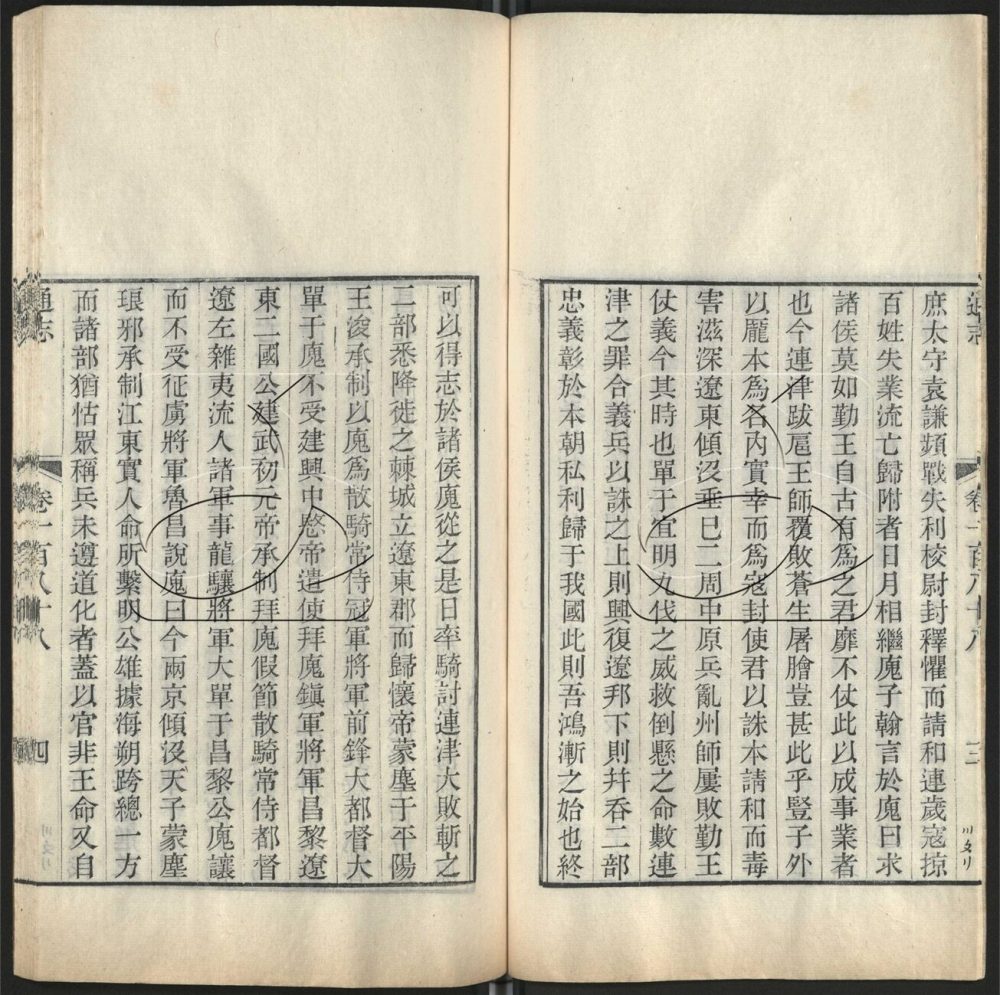 通志 卷一百八十八 三
庶太守袁謙頻戰失利校尉封釋懼而請和連歲寇掠
百姓失業流亡歸附者日月相繼廆子翰言於廆曰求
諸侯莫如勤王自古有為之君靡不仗此以成事業者
也今連津跋扈王師覆敗蒼生屠膾豈甚此乎豎子外
以龐本為名內實幸而為寇封使君以誅本請和而毒
害滋深遼東傾沒垂已二周中原兵亂州師屢敗勤王
仗義今其時也單于宜明九伐之威救倒懸之命數連
津之罪合義兵以誅之上則興復遼邦下則幷吞二部
忠義彰於本朝私利歸于我國此則吾鴻漸之始也終
可以得志於諸侯廆從之是日率騎討連津大敗斬之
二部悉降徙之棘城立遼東郡而歸懷帝蒙塵于平陽
王浚承制以廆為散騎常侍冠軍將軍前鋒大都督大
單于廆不受建興中愍帝遣使拜廆鎭軍將軍昌黎遼
東二國公建武初元帝承制拜廆假節散騎常侍都督
遼左雜夷流人諸軍事龍驤將軍大單于昌黎公廆讓
而不受征虜將軍魯昌說廆曰今兩京傾沒天子蒙塵
琅邪承制江東實人命所繫明公雄據海朔跨總一方
而諸部猶怙眾稱兵未遵道化者蓋以官非王命又自
通志 卷一百八十八 四